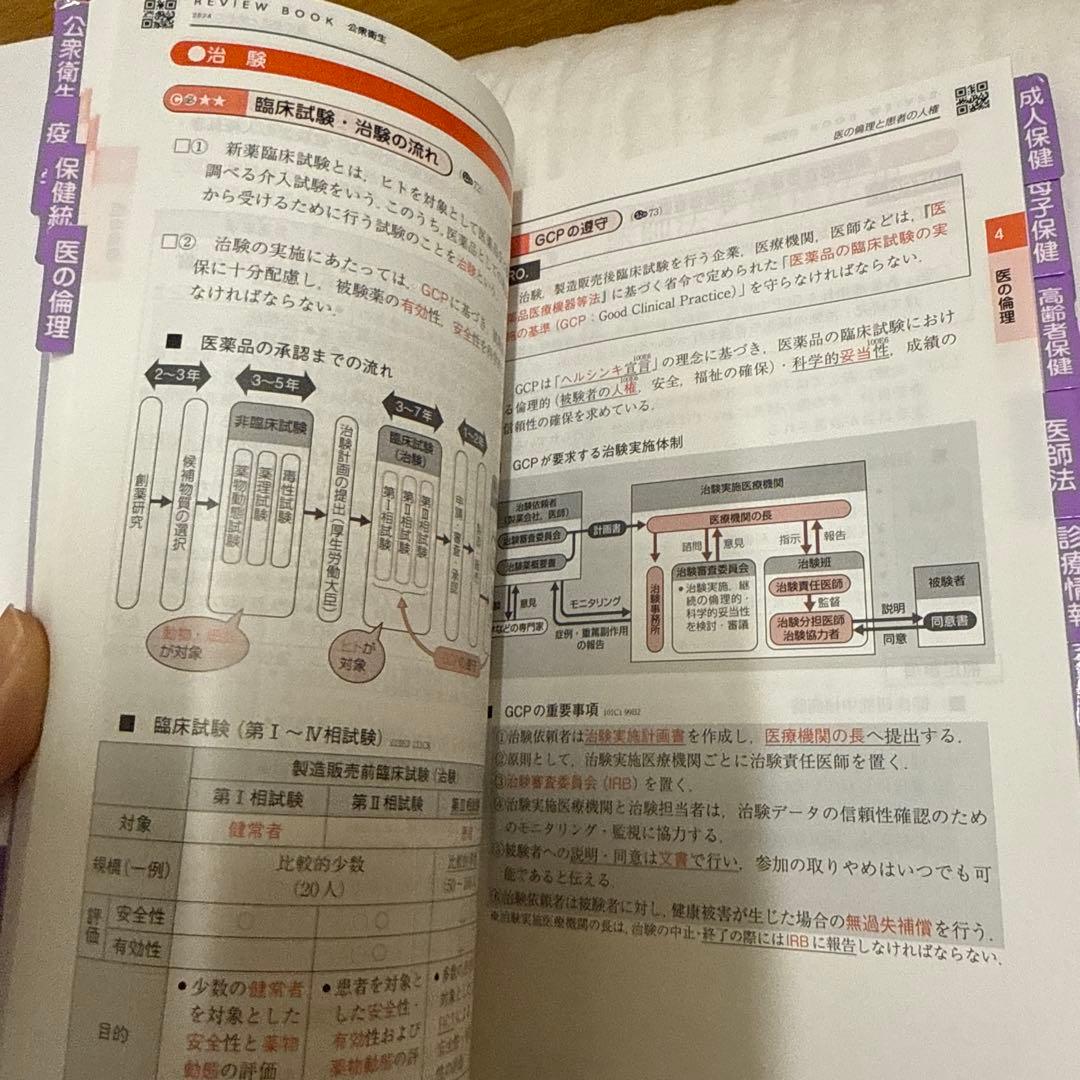 公衆衛生
疫
保健統
医の倫理
REVIEW BOOK 公衆衛生
2024
●治 験
臨床試験・治験の流れ
□① 新薬臨床試験とは，ヒトを対象として医薬品
調べる介入試験をいう．このうち，医薬品としての
から受けるために行う試験のことを治験という
□② 治験の実施にあたっては，GCPに基づき，
保に十分配慮し，被験薬の有効性，安全性を
なければならない．
■ 医薬品の承認までの流れ
2～3年
3～5年
3～7年
1～2年
創薬研究
候補物質の選択
非臨床試験
薬物動態試験
薬理試験
毒性試験
治験計画の提出（厚生労働大臣）
臨床試験
（治験）
第Ⅰ相試験
第Ⅱ相試験
第Ⅲ相試験
申請・審査・承認
動物・
が対象
ヒトが
対象
■ 臨床試験（第Ⅰ～Ⅳ相試験）
製造販売前臨床試験（治験）
第Ⅰ相試験
第Ⅱ相試験
対象
健常者
規模（一例）
比較的少数
（20人）
評価
安全性
○
○
有効性
○
目的
●少数の健常者
を対象とした
安全性と薬物
動態の評価
●患者を対象と
した安全性・
有効性および
薬物動態の評
医の倫理と患者の人権
GCPの遵守
73)
RO.
治験，製造販売後臨床試験を行う企業，医療機関，医師などは，『医
薬品医療機器等法』に基づく省令で定められた『医薬品の臨床試験の実
の基準（GCP：Good Clinical Practice）』を守らなければならない．
GCPは「ヘルシンキ宣言」の理念に基づき，医薬品の臨床試験におけ
る倫理的（被験者の人権，安全，福祉の確保）・科学的妥当性，成績の
信頼性の確保を求めている．
GCPが要求する治験実施体制
治験依頼者
（製薬会社，医師）
治験審査委員会
治験薬概要書
意見
などの専門家
計画書
モニタリング
症例・重篤副作用
の報告
治験実施医療機関
医療機関の長
諮問
意見
指示
報告
治験事務所
治験審査委員会
●治験実施，継
続の倫理的・
科学的妥当性
を検討・審議
治験班
治験責任医師
監督
治験分担医師
治験協力者
説明
同意
被験者
同意書
GCPの重要事項
①治験依頼者は治験実施計画書を作成し，医療機関の長へ提出する．
②原則として，治験実施医療機関ごとに治験責任医師を置く．
③治験審査委員会（IRB）を置く．
④治験実施医療機関と治験担当者は，治験データの信頼性確認のため
のモニタリング・監視に協力する．
⑤被験者への説明・同意は文書で行い，参加の取りやめはいつでも可
能であると伝える．
治験依頼者は被験者に対し，健康被害が生じた場合の無過失補償を行う．
※治験実施医療機関の長は，治験の中止・終了の際にはIRBに報告しなければならない．
4
医の倫理
成人保健
母子保健
高齢者保健
医師法
診療情報